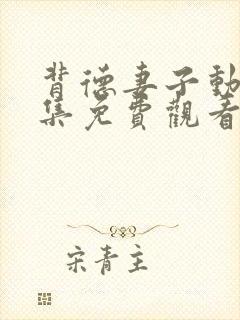 背德妻子動
集免費觀看
宋青主